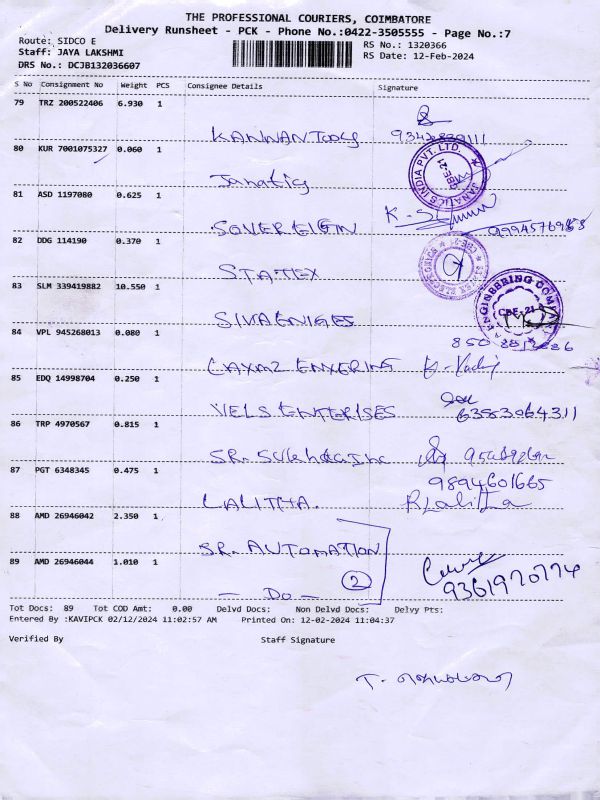 THE PROFESSIONAL COURIERS, COIMBATORE
Delivery Runsheet - PCK - Phone No.:0422-3505555 - Page No.:7
Route: SIDCO E
RS No.: 1320366
Staff: JAYA LAKSHMI
RS Date: 12-Feb-2024
DRS No.: DCJB132036607
S No Consignment No Weight PCS Consignee Details Signature
79 TRZ 200522406 6.930 1
KANNAN Tools
80 KUR 7001075327 0.060 1
Janatics
JANATICS INDIA PVT. LTD.
81 ASD 1197080 0.625 1
SOVEREIGIN
82 DDG 114190 0.370 1
STATEX
83 SLM 339419882 10.550 1
SIVAENIGES
ENGINEERING COMPANY
CBE-21
84 VPL 945268013 0.080 1
LAXMI ENXERING
85 EDQ 14998704 0.250 1
VELS ENTERISES 6383064311
86 TRP 4970567 0.815 1
SR.
87 PGT 6348345 0.475 1
9894601665
LALITHA. R Lalitha
88 AMD 26946042 2.350 1
SR. AUTOMATION
89 AMD 26946044 1.010 1
- DO - 2
9361970774
Tot Docs: 89 Tot COD Amt: 0.00 Delvd Docs: Non Delvd Docs: Delvy Pts:
Entered By :KAVIPCK 02/12/2024 11:02:57 AM Printed On: 12-02-2024 11:04:37
Verified By Staff Signature